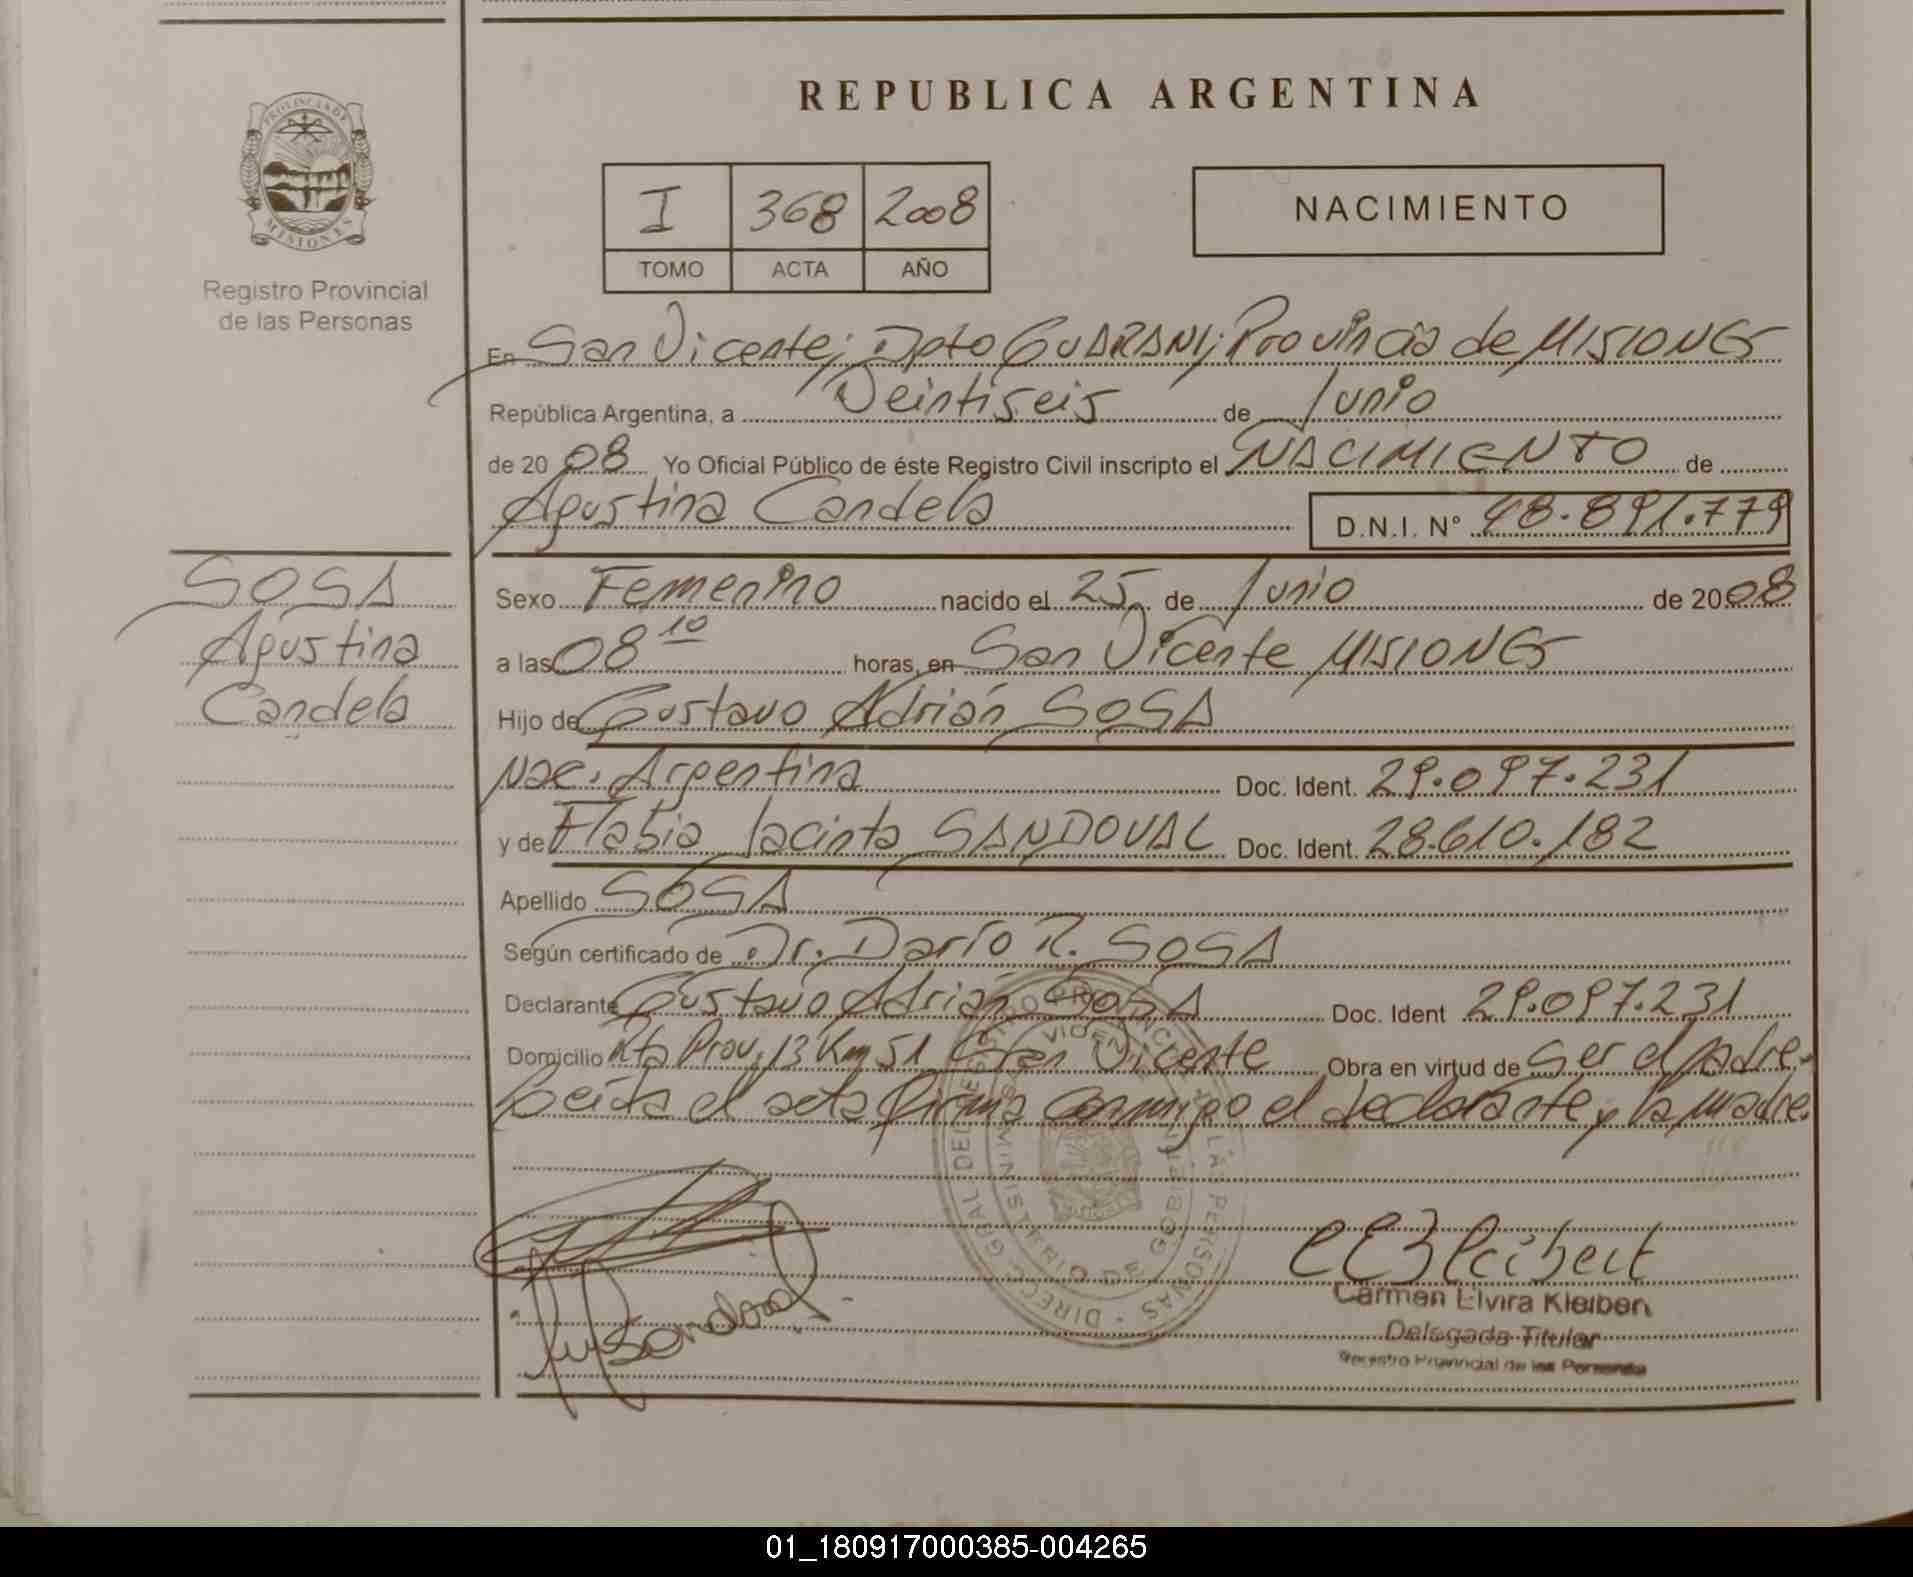 REPUBLICA ARGENTINA
PROVINCIA DE
MISIONES
Registro Provincial
de las Personas
I 368 2008
TOMO ACTA AÑO
NACIMIENTO
En San Vicente, Dpto GUARANI; Provincia de MISIONES
República Argentina, a Veintiseis de Junio
de 2008 Yo Oficial Público de éste Registro Civil inscripto el NACIMIENTO de
Agustina Candela D.N.I. N° 48.891.779
SOSA
Agustina
Candela
Sexo Femenino nacido el 25 de Junio de 2008
a las 08 10 horas, en San Vicente MISIONES
Hijo de Gustavo Adrián SOSA
Nac. Argentina Doc. Ident. 29.097.231
y de Flabia Jacinta SANDOVAL Doc. Ident. 28.610.182
Apellido SOSA
Según certificado de Dr. Darío R. SOSA
Declarante Gustavo Adrián SOSA Doc. Ident 29.097.231
Domicilio Rta Prov. 13 Km 51 San Vicente Obra en virtud de Ser el padre.
Leída el acta firma conmigo el declarante y la madre.
Sandoval
Carmen Elvira Kleiben
Delegada Titular
Registro Provincial de las Personas
01_180917000385-004265